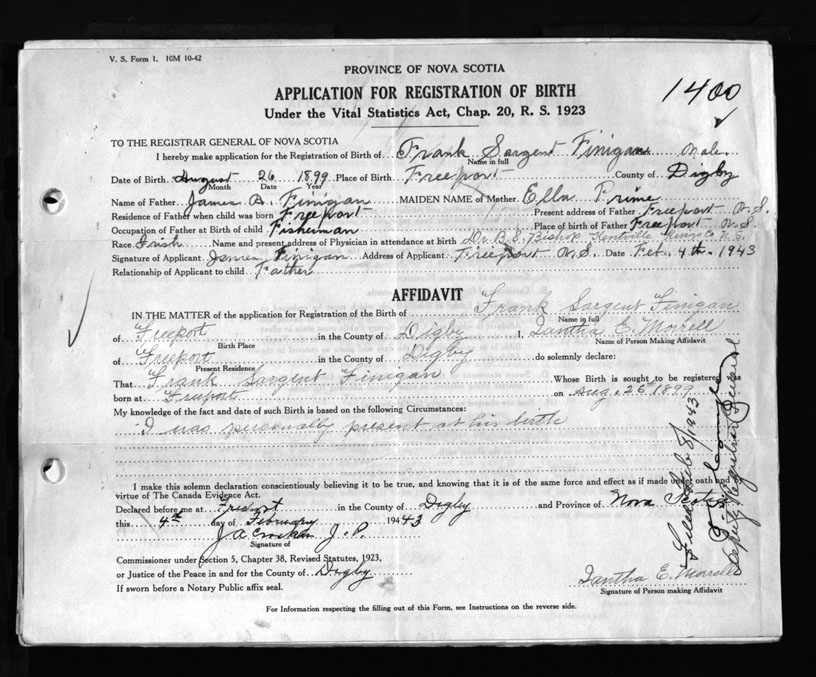 V. S. Form 1. 10M 10-42
PROVINCE OF NOVA SCOTIA
APPLICATION FOR REGISTRATION OF BIRTH
Under the Vital Statistics Act, Chap. 20, R. S. 1923
1400
TO THE REGISTRAR GENERAL OF NOVA SCOTIA
I hereby make application for the Registration of Birth of Frank Sargent Finigan Male
Name in full
Date of Birth August 26 1899 Place of Birth Freeport County of Digby
Month Date Year
Name of Father James B. Finigan MAIDEN NAME of Mother Ella Prime
Residence of Father when child was born Freeport Present address of Father Freeport N.S.
Occupation of Father at Birth of child Fisherman Place of birth of Father Freeport N.S.
Race Irish Name and present address of Physician in attendance at birth Dr. B. S. Bishop Kentville N.S.
Signature of Applicant James Finigan Address of Applicant Freeport N.S. Date Feb. 4th 1943
Relationship of Applicant to child Father
AFFIDAVIT
IN THE MATTER of the application for Registration of the Birth of Frank Sargent Finigan
Name in full
of Freeport in the County of Digby I, Iantha E. Morrell
Birth Place Name of Person Making Affidavit
of Freeport in the County of Digby do solemnly declare:
Present Residence
That Frank Sargent Finigan Whose Birth is sought to be registered was
born at Freeport on Aug. 26th 1899
My knowledge of the fact and date of such Birth is based on the following Circumstances:
I was personally present at his birth
I make this solemn declaration conscientiously believing it to be true, and knowing that it is of the same force and effect as if made under oath and
virtue of The Canada Evidence Act.
Declared before me at Freeport in the County of Digby and Province of Nova Scotia
this 4th day of February 1943
J. P.
Signature of
Commissioner under Section 5, Chapter 38, Revised Statutes, 1923,
or Justice of the Peace in and for the County of Digby
If sworn before a Notary Public affix seal.
Iantha E. Morrell
Signature of Person making Affidavit
For Information respecting the filling out of this Form, see Instructions on the reverse side.
Filed Feb 8/1943
Deputy Registrar General